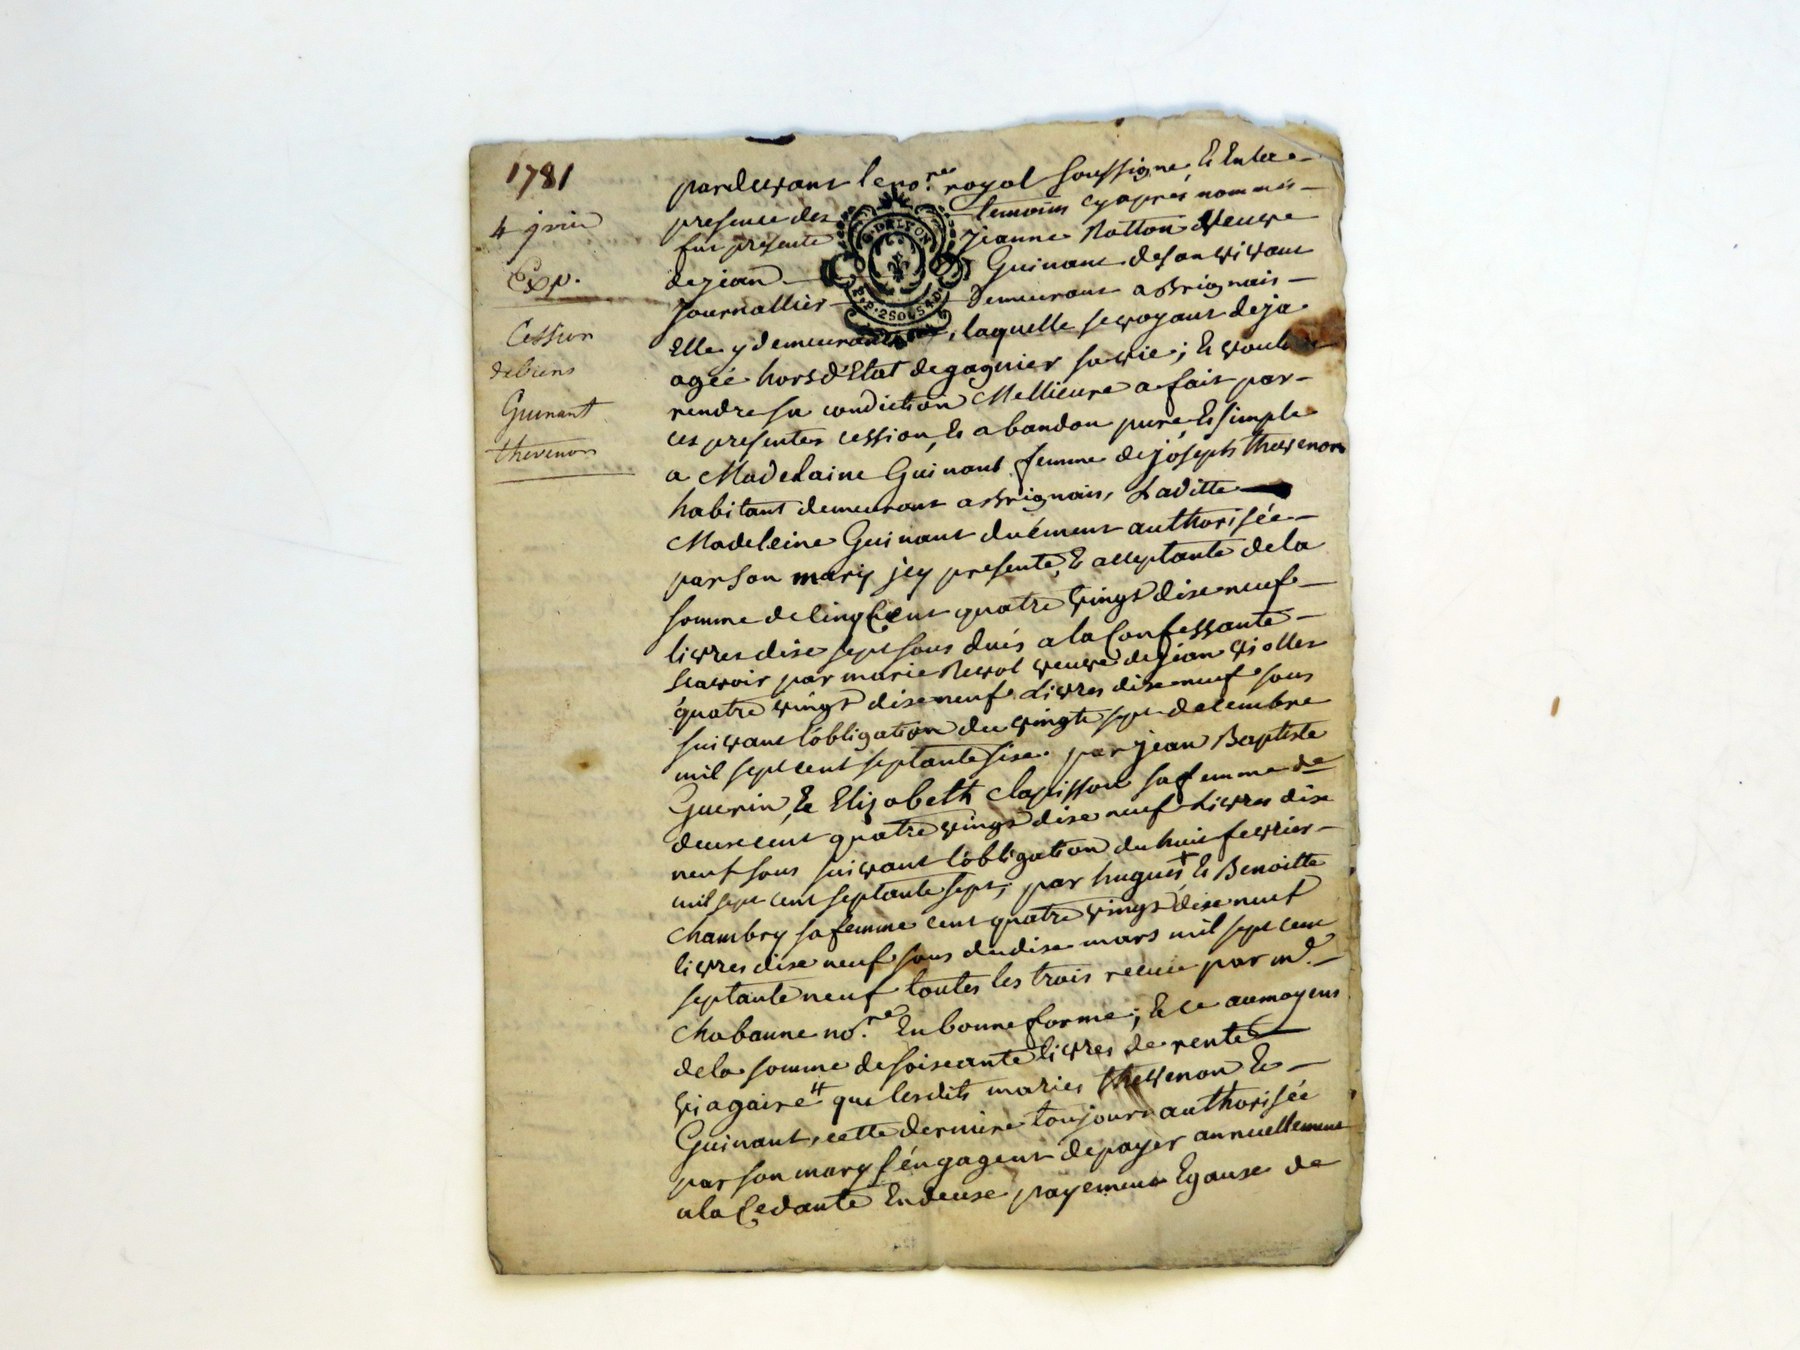 1781
4 juin
Exp.
Cession
de biens
Guinant
thevenon
pardevant le no.re royal soussigné, & En la
presence des temoins cy après nommés
fut presente Jeanne Ratton veuve
de jean Guinant de son vivant
journallier demeurant a Brignais
G. DE LYON
Elle y demeurant, laquelle se voyant deja
agéé hors d'Etat de gagnier sa vie; & voulant
rendre sa condiction Mellieure a fait par
ces presentes cession, & abandon pure, & simple
a Madelaine Guinant femme de joseph thevenon
habitant demeurant a Brignais, Laditte
Madeleine Guinant duément authorisée
par son mary jcy presente, & acceptante de la
somme de Cinq Cent quatre vingt dixe neuf
livres dixe sept sous dués a la Confessante
scavoir par marie Revol veuve de jean violler
quatre vingt dixe neuf Livres dixe neuf sous
suivant l'obligation du vingte sept decembre
mil sept cent septante sixe. par jean Baptiste
Guerin, & Elizabeth clapisson sa femme de
deuxe cent quatre vingt dixe neuf Livres dixe
neuf sous suivant l'obligation du huit fevrier
mil sept cent septante sept; par hugues + & Benoitte
chambry sa femme cent quatre vingt dixe neuf
livres dixe neuf sous du dixe mars mil sept cent
septante neuf toutes les trois recüe par m.e
chabanne no.re En bonne forme; & ce au moyens
de la somme de soixante livres de rente
viagaire # que lesdits mariés thevenon &
Guinant, cette derniere toujours authorisée
par son mary s'éngagent de payer annuellement
a la Cedante En deuxe payement Egause de